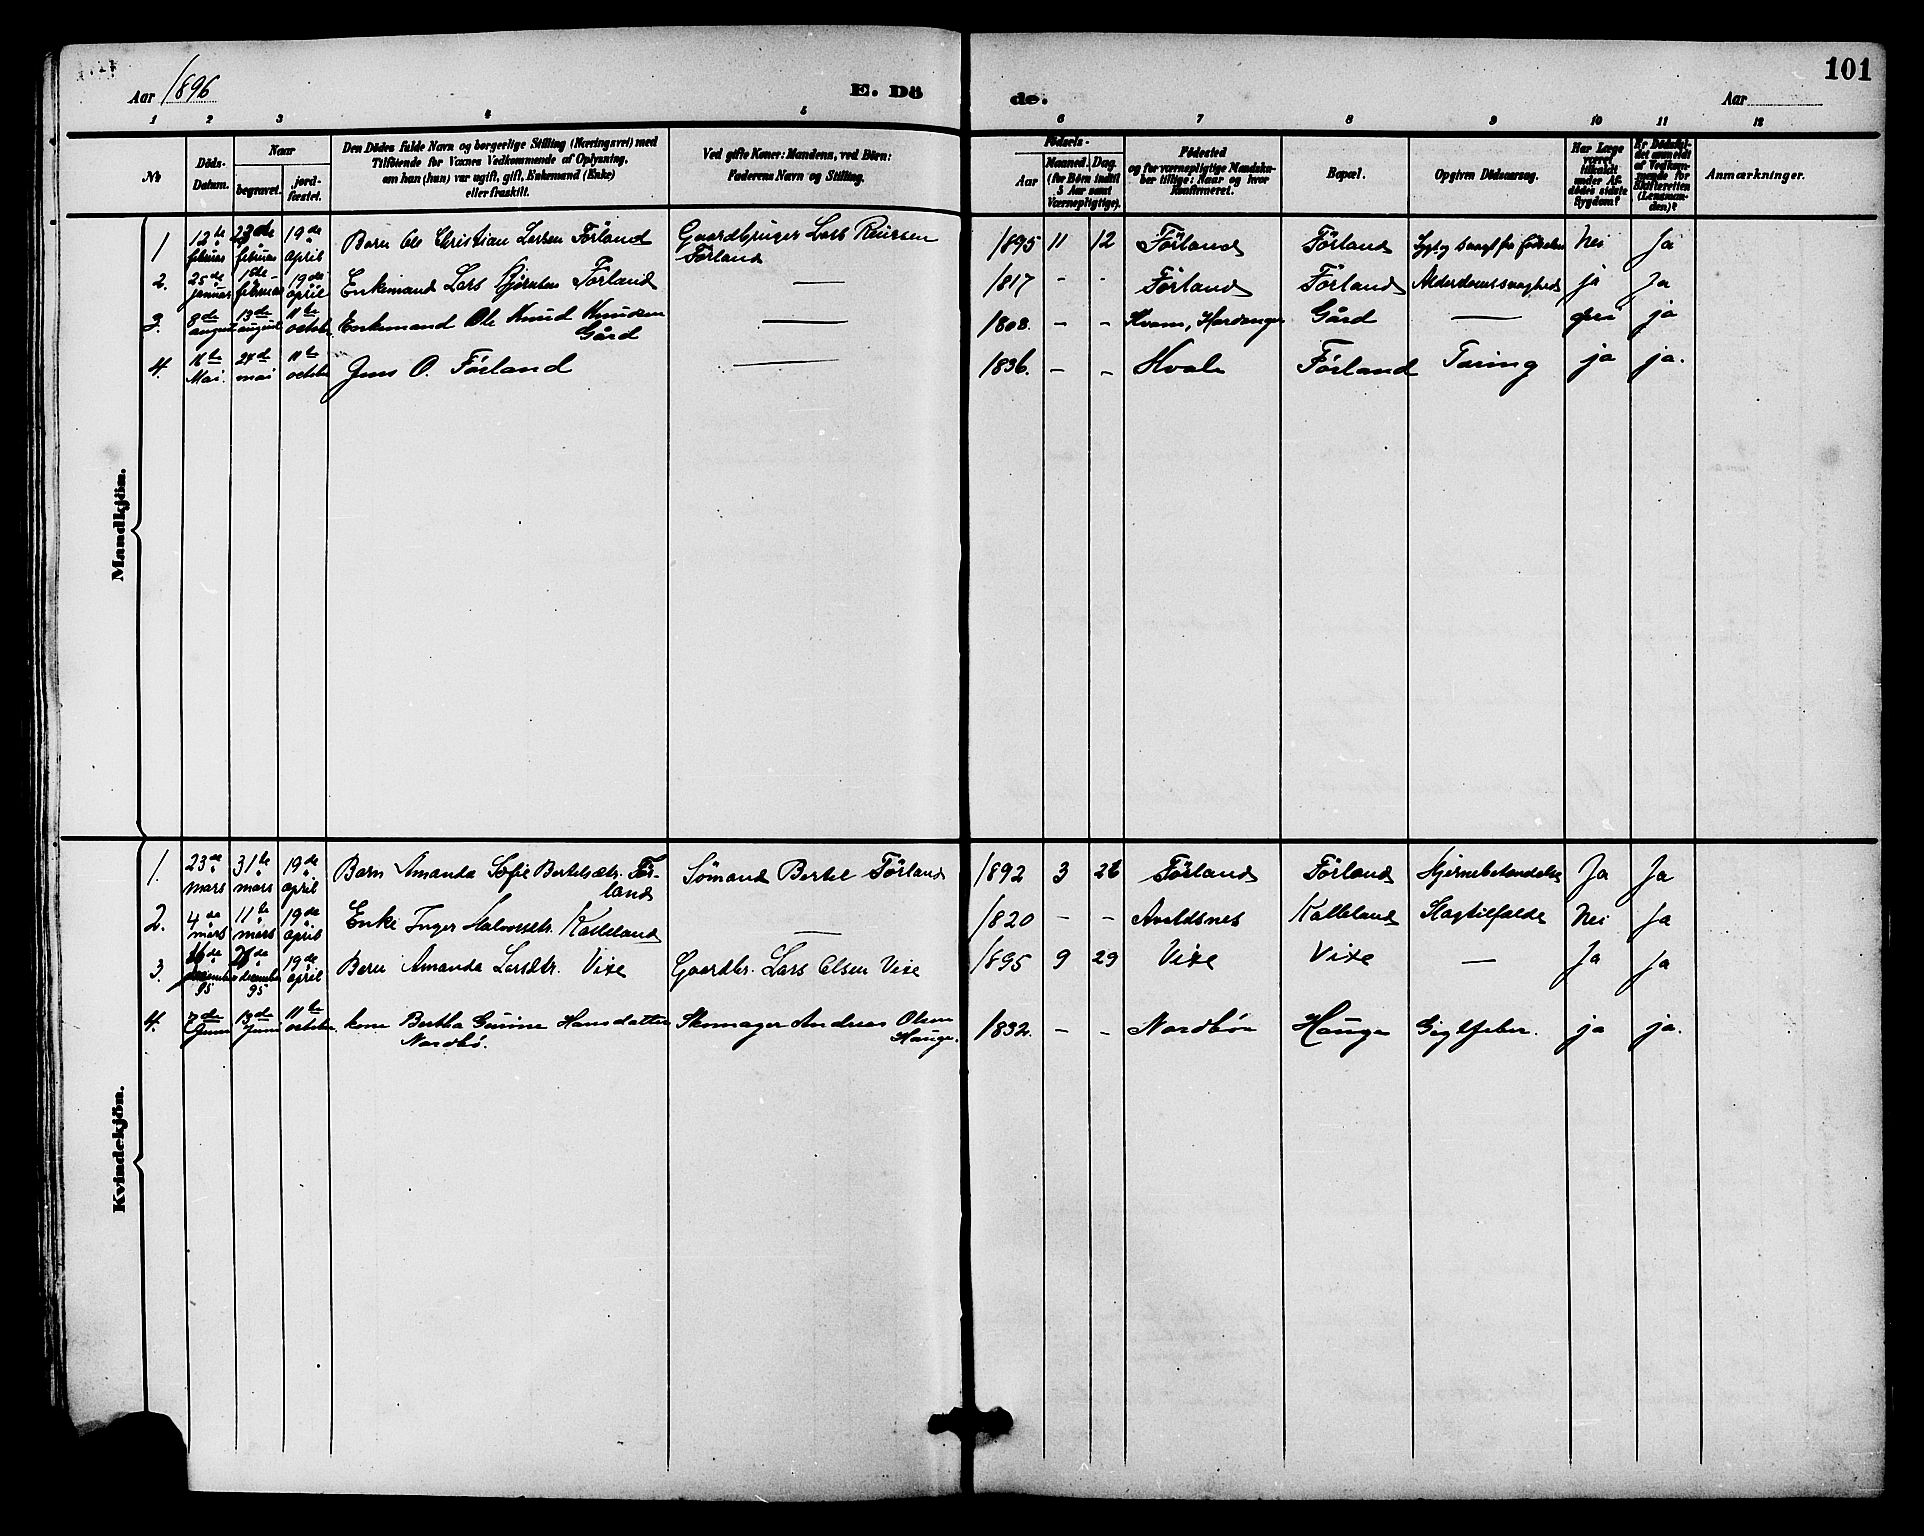 Aar 1896
E. Dö de.
Aar
101
1 2 3 4 5 6 7 8 9 10 11 12
No
Döds-Datum.
Naar
begravet.
jord-fæstet.
Den Dödes fulde Navn og borgerlige Stilling (Næringsvei) med
Tilföiende for Voxnes Vedkommende af Oplysning,
om han (hun) var ugift, gift, Enkemand (Enke)
eller fraskilt.
Ved gifte Koner: Mandens, ved Börn:
Faderens Navn og Stilling.
Födsels-
Aar
Maaned. Dag.
(for Börn indtil
5 Aar samt
Værnepligtige).
Födested
og for værnepligtige Mandska-
ber tillige: Naar og hvor
Konfirmeret.
Bopæl.
Opgiven Dödsaarsag.
Har Læge
været
tilkaldt
under Af-
dödes sidste
Sygdom?
Er Dödsfal-
det anmeldt
af Vedkom-
mende for
Skifteretten
(Lensman-
den)?
Anmærkninger.
Mandkjön.
1 12te februar 23de februar 19de april Barn Ole Christian Larsen Førland Gaardbruger Lars Førland 1895 11 12 Førland Førland Sygt og svagt fra fødselen Nei Ja
2. 25de januar 1ste februar 19de april Enkemand Lars Bjørnsen Førland — 1817 - - Førland Førland Alderdomssvaghed ja Ja
3. 8de august 13de august 11te octobr Enkemand Ole Knud Knudsen Gård — 1808. - - Kvam, Hardanger Gård — ja
4. 16te Mai. 24de mai 11te octobr Jens O. Førland — 1836. - - Hvale Førland Tæring ja ja.
Kvindekjön.
1. 23de mars 31te mars 19de april Barn Amanda Sofie Bertelsdtr. Før-
land Sømand Bertel Førland 1892 3 26 Førland Førland Hjernebetændelse Ja Ja
2. 4de mars 11te mars 19de april Enke Inger Halvorsdtr. Kalleland — 1820 - - Avaldsnes Kalleland Slagtilfælde Nei Ja
3. december 95 december 95 19de april Barn Amanda Larsdtr. Vixe Gaardbr. Lars Olsen Vixe 1895 9 29 Vixe Vixe — Ja Ja
4. 7de Juni 13de Juni 11te octobr kone Bertha Gurine Hansdatter
Nordbø. Skomager Andreas Olsen
Hauge. 1832. - - Nordbøe Hauge Gigtfeber. ja ja.